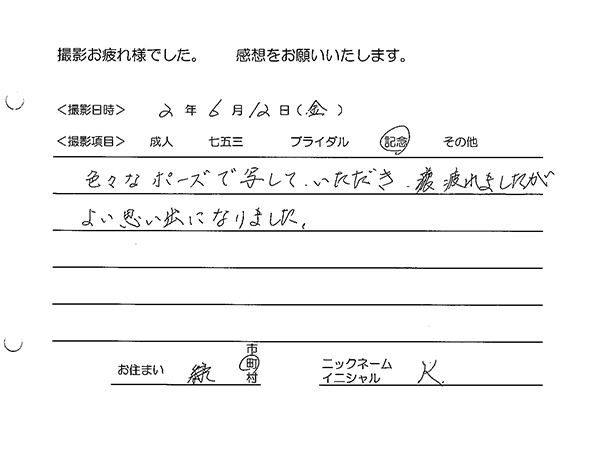 撮影お疲れ様でした。 感想をお願いいたします。
<撮影日時> 2 年 6 月 12 日(金)
<撮影項目> 成人 七五三 ブライダル 記念 その他
色々なポーズで写して、いただき、疲れましたが
よい思い出になりました。
お住まい 市 町 村
ニックネーム イニシャル K.